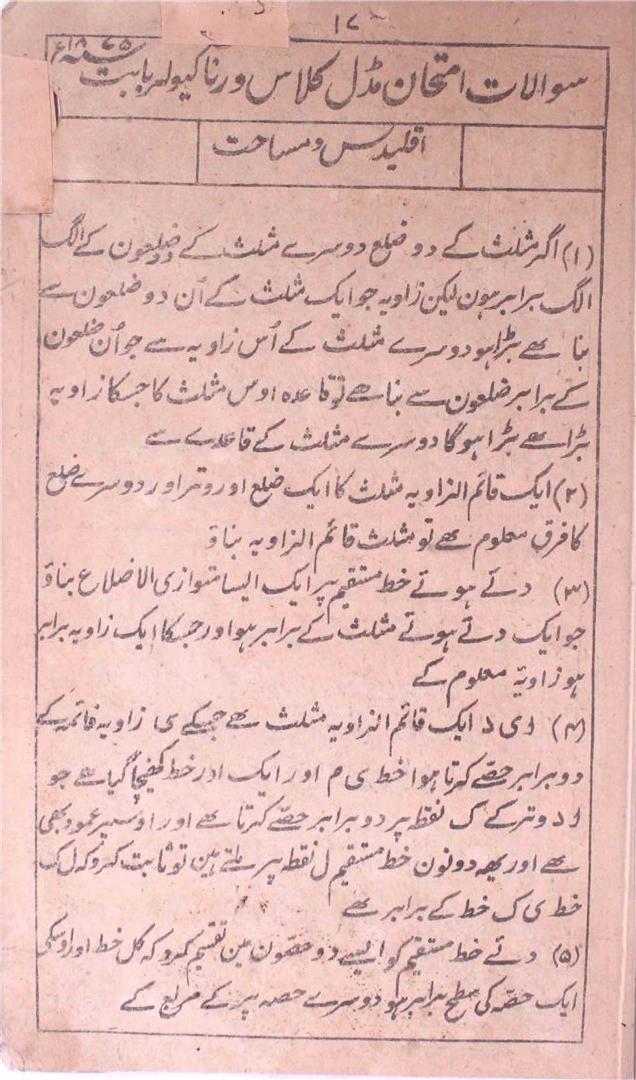 ۱۷
سوالات امتحان مڈل کلاس ورناکیولر بابت سنہ ۱۸۷۵ع
اقلیدس و مساحت
(۱) اگر مثلث کے دو ضلع دوسرے مثلث کے دو ضلعون کے الگ
الگ برابر ہون لیکن زاویہ جو ایک مثلث کے اُن دو ضلعون سے
بنا ہے بڑا ہو دوسرے مثلث کے اُس زاویہ سے جو اُن ضلعون
کے برابر ضلعون سے بنا ہے تو قاعدہ اوس مثلث کا جسکا زاویہ
بڑا ہے بڑا ہوگا دوسرے مثلث کے قاعدے سے
(۲) ایک قائم الزاویہ مثلث کا ایک ضلع اور وتر اور دوسرے ضلع
کا فرق معلوم ہے تو مثلث قائم الزاویہ بناؤ
(۳) دئے ہوئے خط مستقیم پر ایک ایسا متوازی الاضلاع بناؤ
جو ایک دئے ہوئے مثلث کے برابر ہو اور جسکا ایک زاویہ برابر
ہو زاویۂ معلوم کے
(۴) ا ی د ایک قائم الزاویہ مثلث ہے جسکے ی زاویہ قائمہ کے
دو برابر حصے کرتا ہوا خط ی م اور ایک اور خط کھینچا گیا ہے جو
ا د وتر کے ک نقطہ پر دو برابر حصے کرتا ہے اور اوسپر عمود بھی
ہے اور یہہ دونون خط مستقیم ل نقطہ پر ملتے ہین تو ثابت کرو کہ ل ک
خط ی ک خط کے برابر ہے
(۵) دئے خط مستقیم کو ایسے دو حصون مین تقسیم کرو کہ کل خط اور اوسکی
ایک حصہ کی سطح برابر ہو دوسرے حصہ پر کے مربع کے